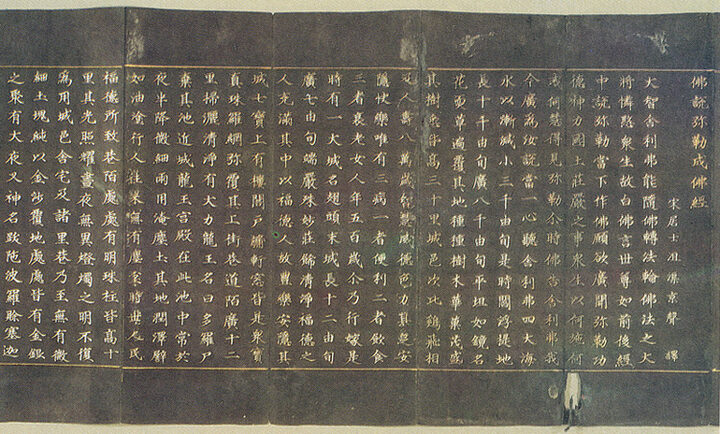 佛說弥勒成佛經
宋居士沮渠京聲 譯
大智舍利弗能隨佛轉法輪佛法之大
將憐愍衆生故白佛言世尊如前後經
中說弥勒當下作佛願欲廣聞弥勒功
德神力國土莊嚴之事衆生以何施何
戒何慧得見弥勒尒時佛告舍利弗我
今廣為汝說當一心聽舍利弗四大海
水以漸減小三千由旬是時閻浮提地
長十千由旬廣八千由旬平坦如鏡名
花耎草遍覆其地種種樹木華菓茂盛
其樹悉皆高三十里城邑次比鷄飛相
及人壽八萬歲智慧威德色力具足安
隱快樂唯有三病一者便利二者飲食
三者衰老女人年五百歲尒乃行嫁是
時有一大城名翅頭末城長十二由旬
廣七由旬端嚴殊妙莊飾清淨福德之
人充滿其中以福德人故豐樂安隱其
城七寶上有樓閣戶牖軒窓皆是衆寶
真珠羅網弥覆其上街巷道陌廣十二
里掃灑清淨有大力龍王名曰多羅尸
棄其池近城龍王宮殿在此池中常於
夜半降微細雨用淹塵土其地潤澤譬
如油塗行人往来無有塵坌時世人民
福德所致巷陌處處有明珠柱皆高十
里其光照耀晝夜無異燈燭之明不復
為用城邑舍宅及諸里巷乃至無有微
細土塊純以金沙覆地處處皆有金銀
之聚有大夜叉神名跋陀波羅賒塞迦